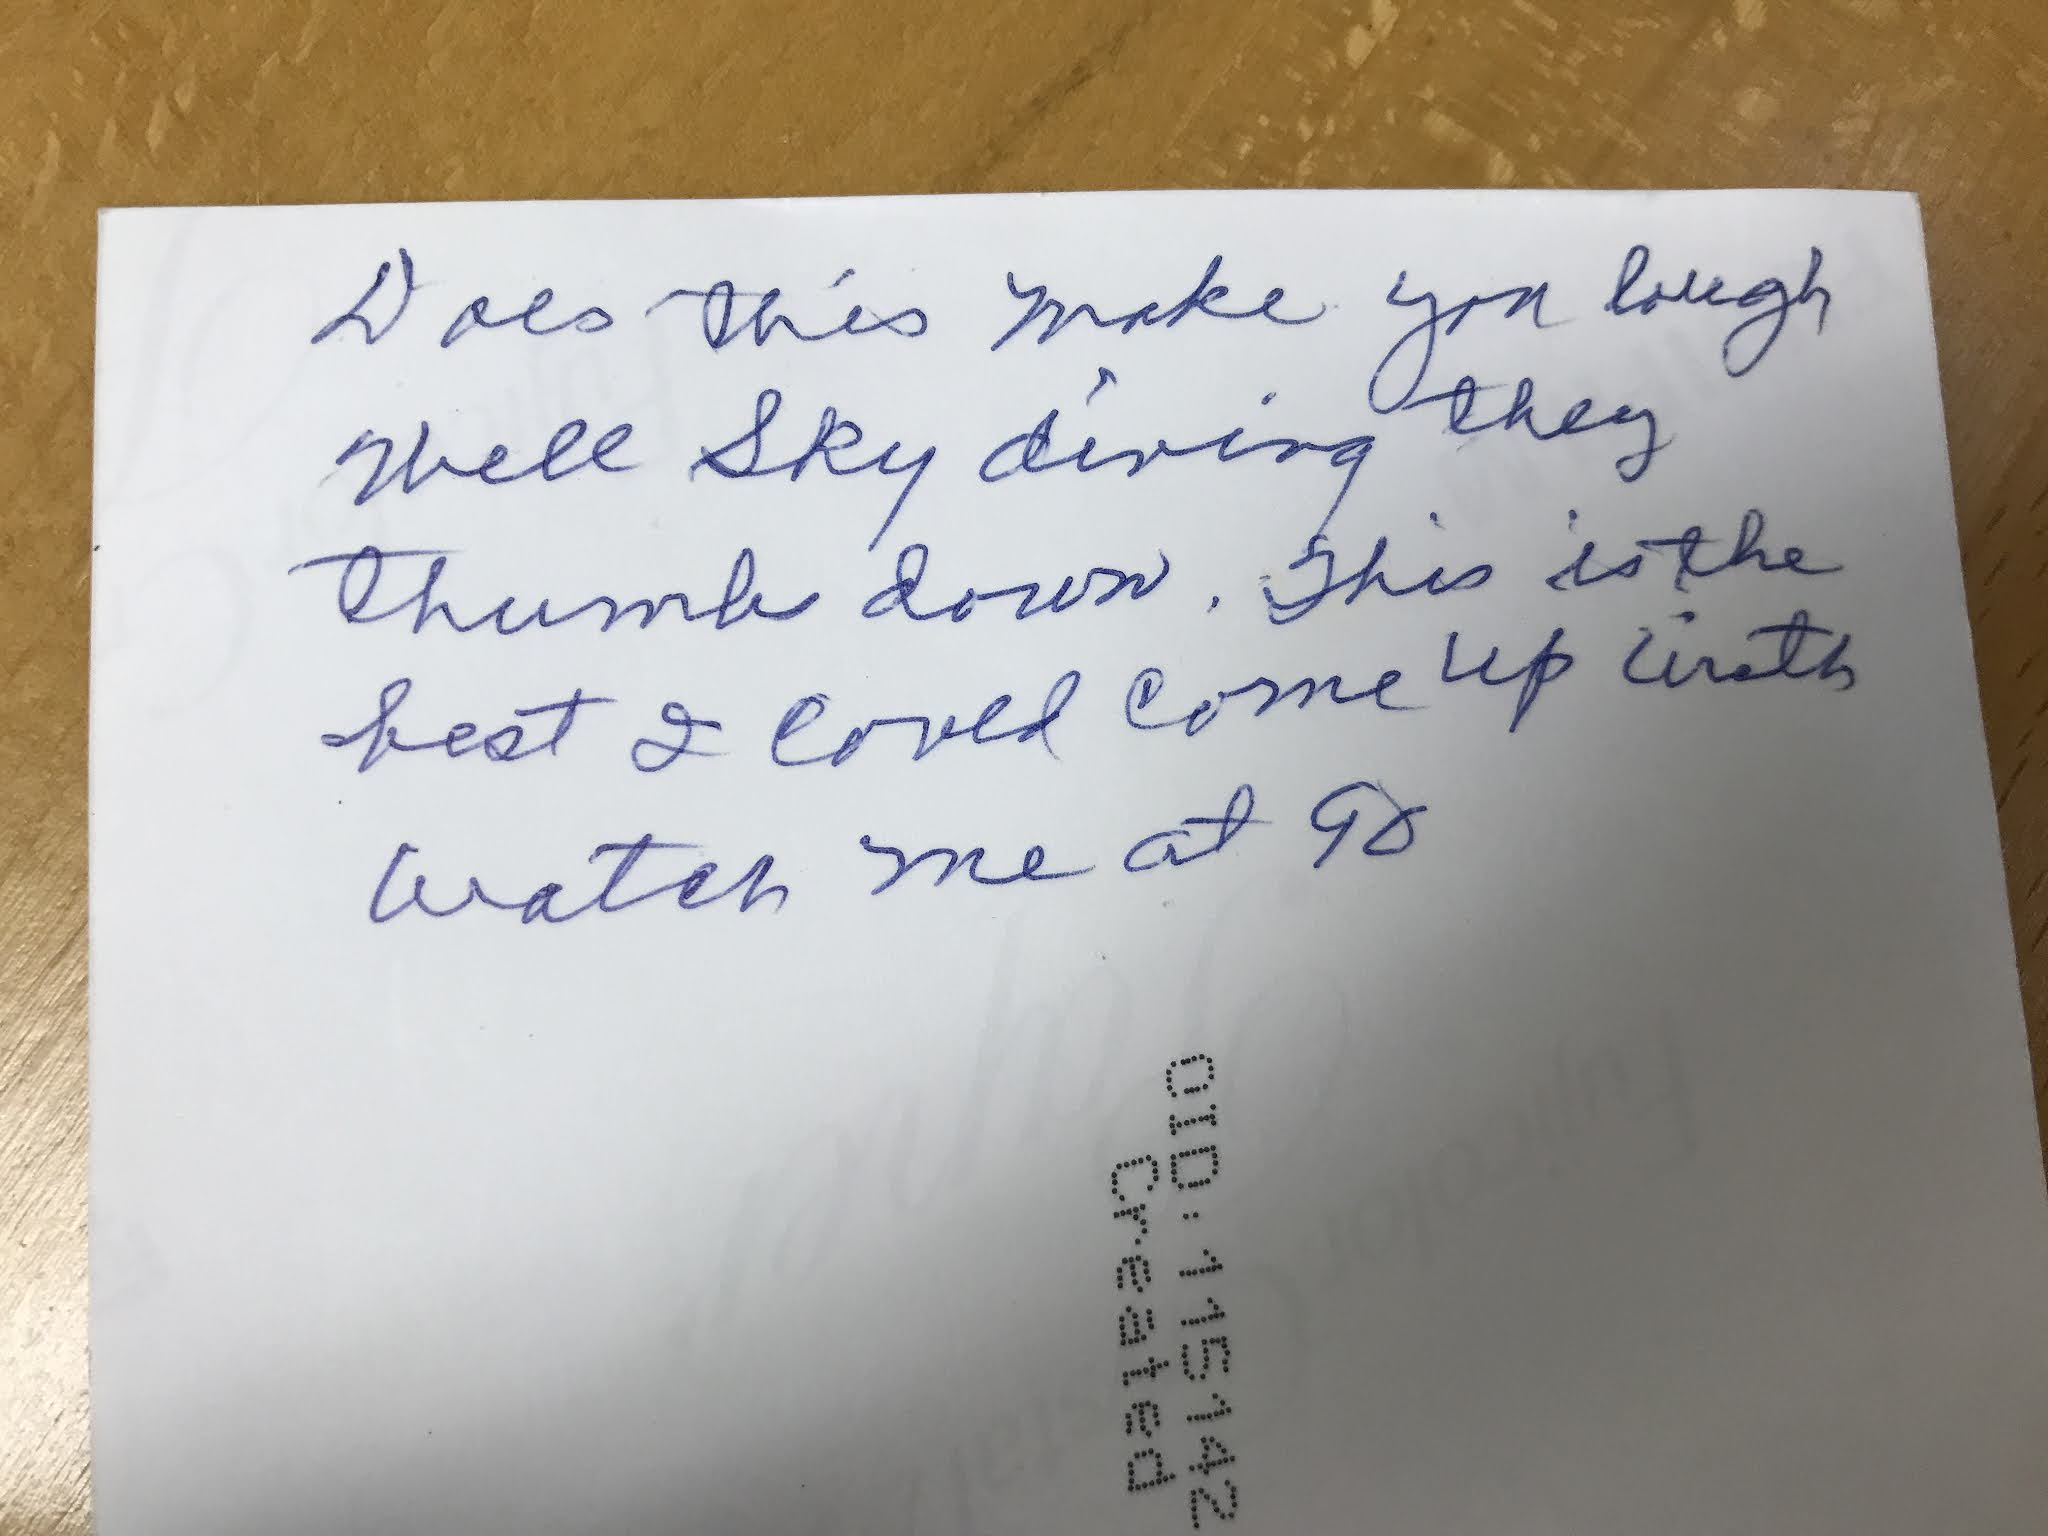 Does this make you laugh
Well Sky diving they
thumb down. This is the
best I could come up with
Watch me at 90
OID: 115142
Created